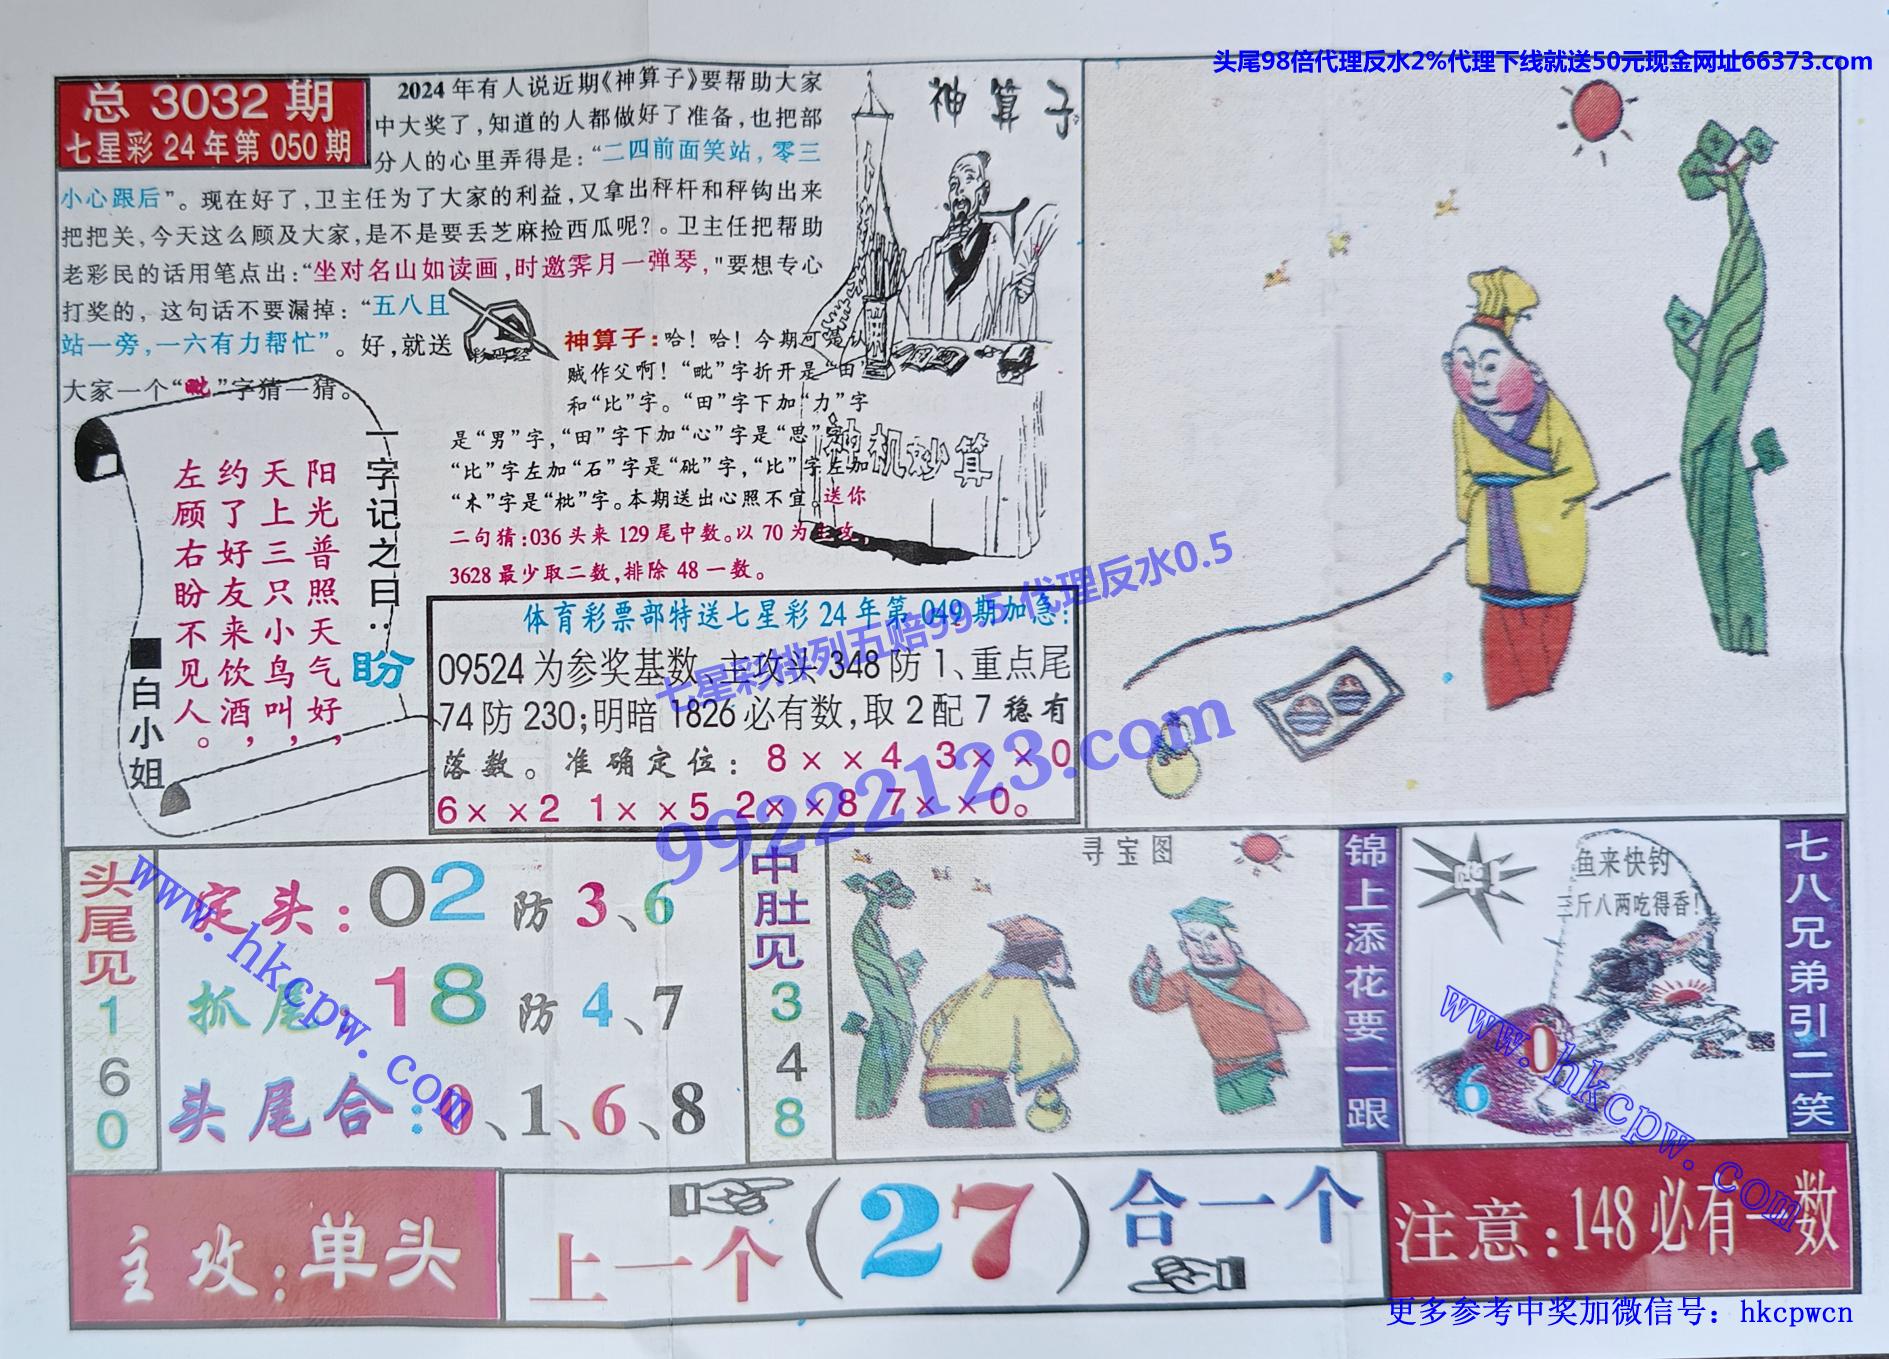 头尾98倍代理反水2%代理下线就送50元现金网址66373.com
总 3032 期
七星彩 24 年第 050 期
2024 年有人说近期《神算子》要帮助大家
中大奖了，知道的人都做好了准备，也把部
分人的心里弄得是：“二四前面笑站，零三
小心跟后”。现在好了，卫主任为了大家的利益，又拿出秤杆和秤钩出来
把把关，今天这么顾及大家，是不是要丢芝麻捡西瓜呢？。卫主任把帮助
老彩民的话用笔点出：“坐对名山如读画，时邀霁月一弹琴，"要想专心
打奖的，这句话不要漏掉：“五八且
站一旁，一六有力帮忙”。好，就送
大家一个“毗”字猜一猜。
彩码经
神算子
神算子：哈！哈！今期可是认
贼作父啊！“毗”字折开是“田”
和“比”字。“田”字下加“力”字
是“男”字，“田”字下加“心”字是“思”字
“比”字左加“石”字是“砒”字，“比”字左加
“木”字是“枇”字。本期送出心照不宣。送你
二句猜：036 头来 129 尾中数。以 70 为主攻，
3628 最少取二数，排除 48 一数。
神机妙算
一字记之曰：盼
阳光普照天气好，
天上三只小鸟叫，
约了好友来饮酒，
左顾右盼不见人。
■白小姐
体育彩票部特送七星彩 24 年第 049 期加急：
09524 为参奖基数、主攻头 348 防 1、重点尾
74 防 230；明暗 1826 必有数，取 2 配 7 稳有
落数。准确定位：8××4 3××0
6××2 1××5 2××8 7××0。
七星彩排列五赔99.5 代理反水0.5
99222123.com
头尾见160
定头：02 防 3、6
抓尾：18 防 4、7
头尾合：0、1、6、8
www.hkcpw.com
中肚见348
寻宝图
锦上添花要一跟
鱼来快钓
三斤八两吃得香！
6 0
七八兄弟引二笑
www.hkcpw.com
主攻：单头
上一个（27）合一个
注意：148 必有一数
更多参考中奖加微信号：hkcpwcn